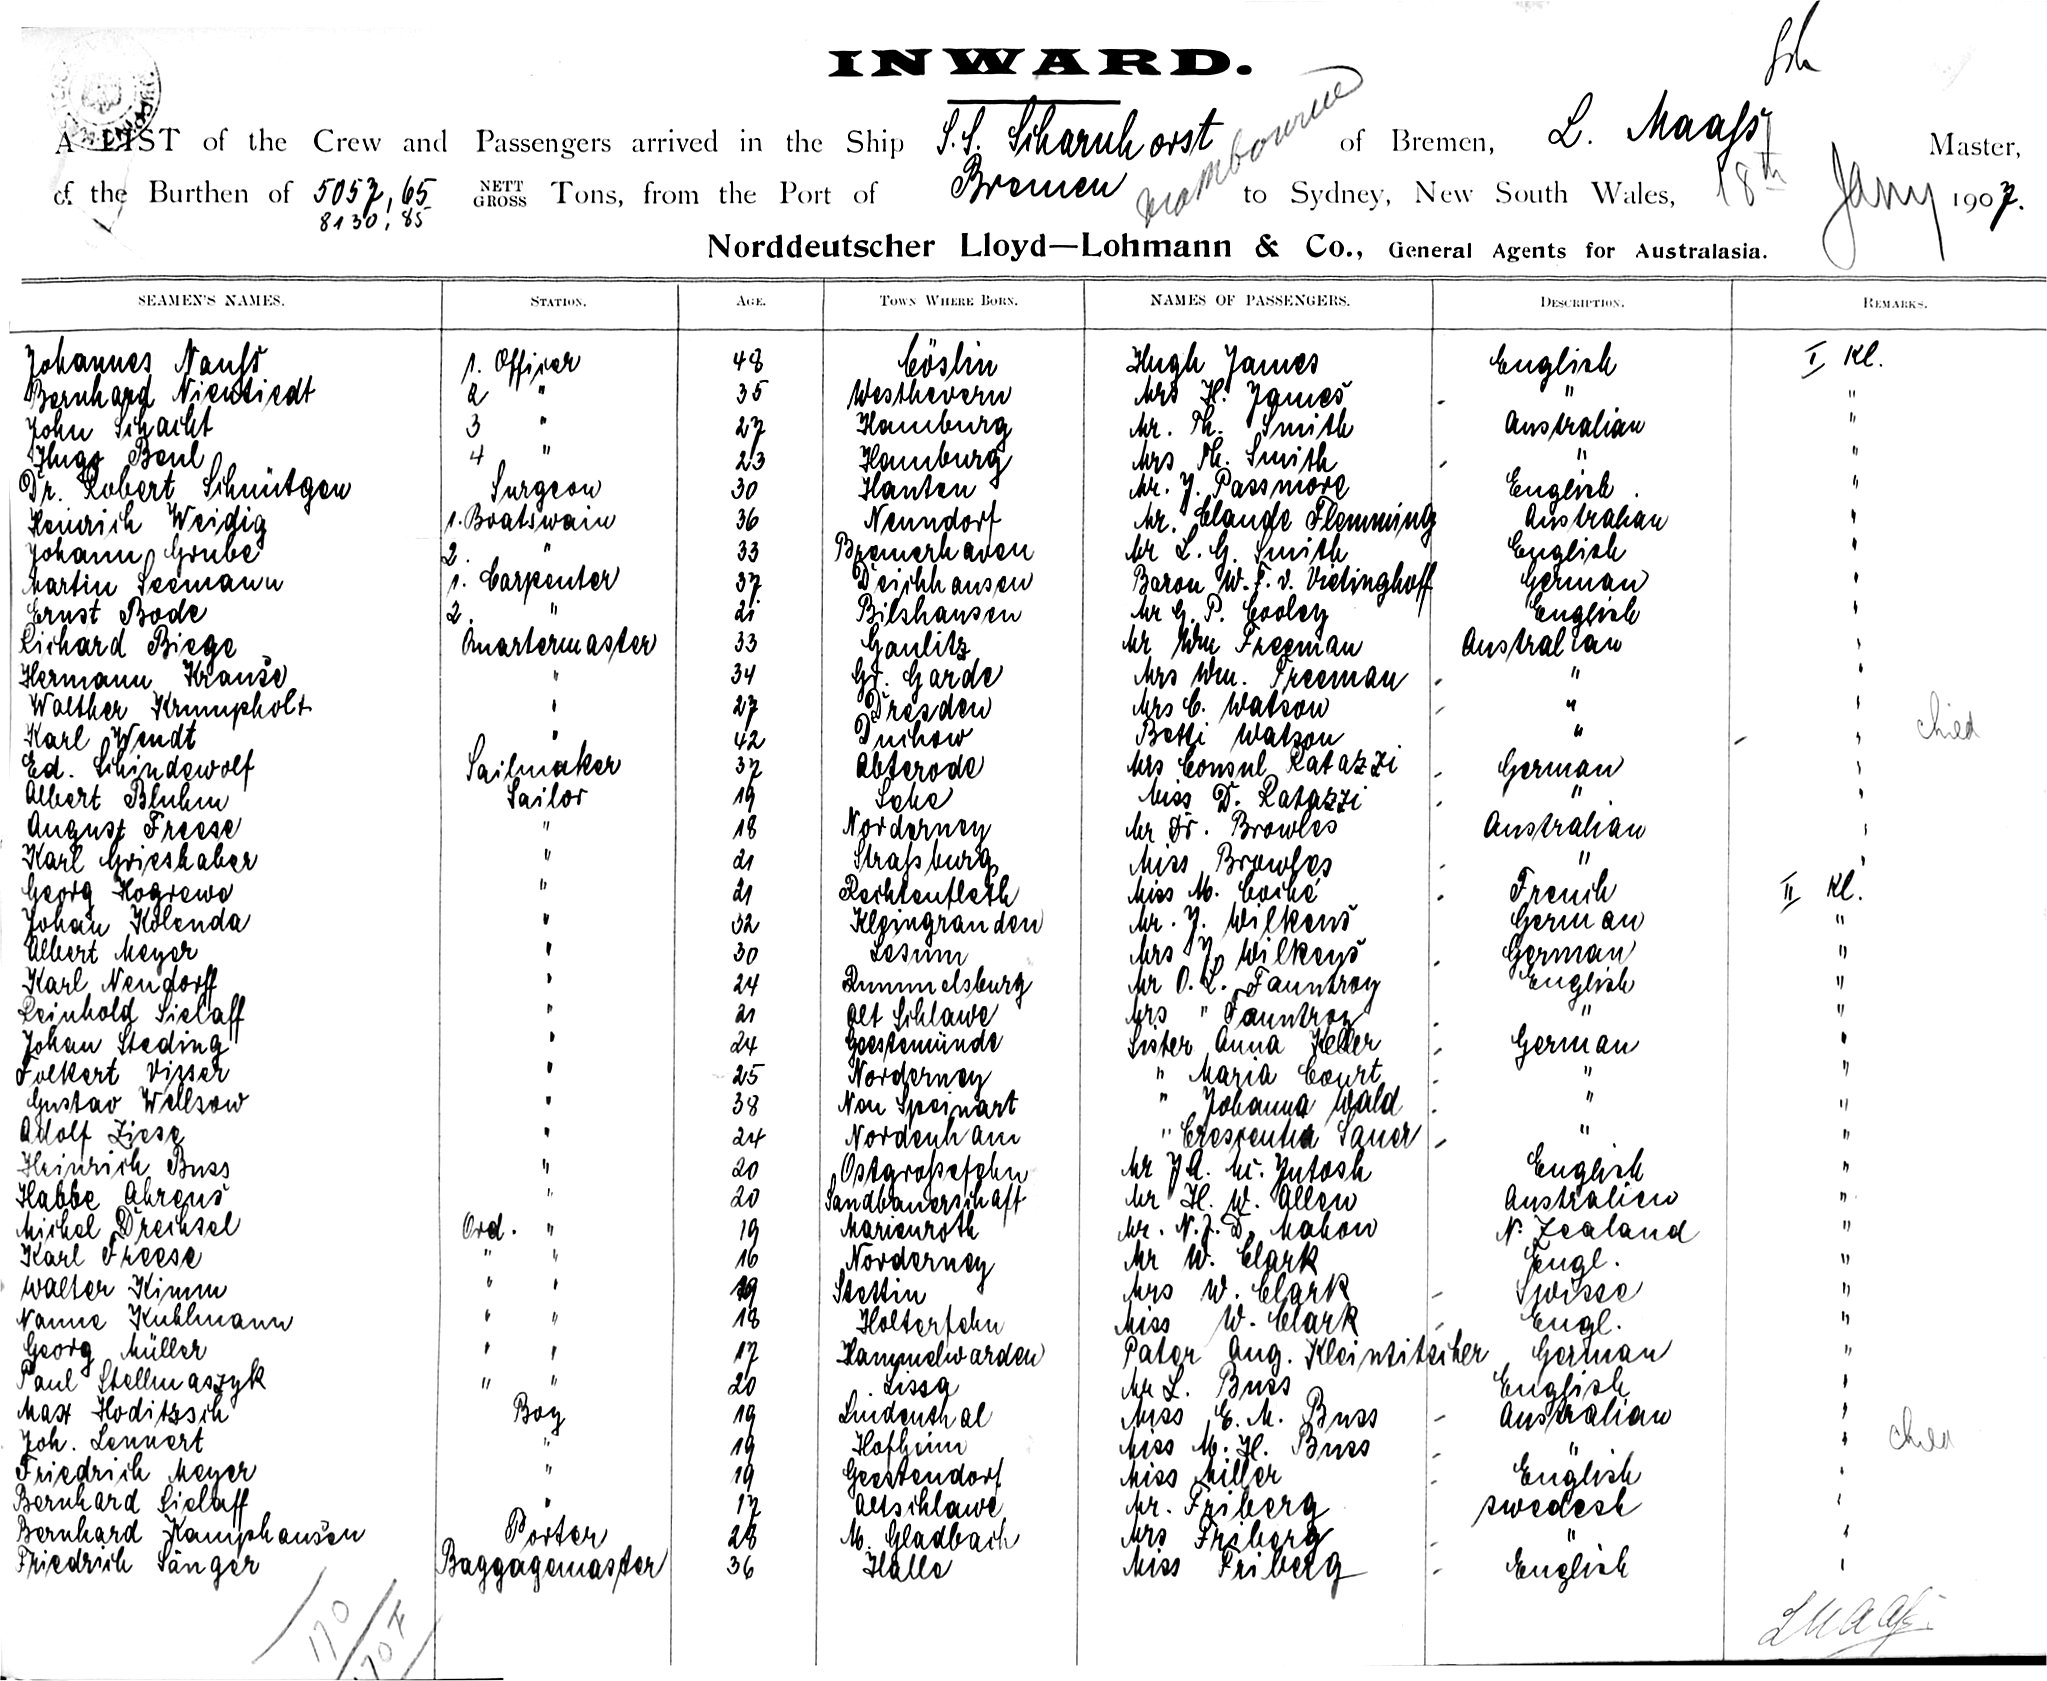 INWARD.
A LIST of the Crew and Passengers arrived in the Ship S.S. Scharnhorst of Bremen, L. Maaß Master,
of the Burthen of 5057,65 NETT Tons, from the Port of Bremen to Sydney, New South Wales, 18th Jany 1907.
8130,85 GROSS
Norddeutscher Lloyd—Lohmann & Co., General Agents for Australasia.
SEAMEN'S NAMES. STATION. AGE. TOWN WHERE BORN. NAMES OF PASSENGERS. DESCRIPTION. REMARKS.
Johannes Nauß 1. Officer 48 Cöslin Hugh James English I Kl.
Bernhard Nienstiedt 2 " 35 Westhevern Mrs H. James " "
John Schacht 3 " 27 Hamburg Mr. Th. Smith Australian "
Hugo Beul 4 " 23 Hamburg Mrs Th. Smith " "
Dr. Robert Schmütgen Surgeon 30 Xanten Mr. J. Passmore English "
Heinrich Weidig 1. Boatswain 36 Nenndorf Mr. Claude Flemming Australian "
Johann Grube 2. " 33 Bremerhaven Mr L. G. Smith English "
Martin Seemann 1. Carpenter 37 Deichhausen Baron W. F. v. Vietinghoff German "
Ernst Bode 2. " 21 Bilshausen Mr G. P. Cooley English "
Richard Biege Quartermaster 33 Gaulitz Mr Wm Freeman Australian "
Hermann Krause " 34 Gr. Garde Mrs Wm. Freeman " "
Walther Krumpholt " 27 Dresden Mrs C. Watson " "
Karl Wendt " 42 Duchow Betti Watson " " child
Ed. Schindewolf Sailmaker 37 Abterode Mrs Consul Ratazzi German "
Albert Bluhm Sailor 19 Lehe Miss D. Ratazzi " "
August Freese " 18 Norderney Mr Dr. Browles Australian "
Karl Grieshaber " 21 Straßburg Miss Browles " "
Georg Hogrewe " 21 Rechtenfleth Miss M. Coché French II Kl.
Johan Kolenda " 32 Kleingranden Mr. J. Wilkens German "
Albert Meyer " 30 Lesum Mrs J. Wilkens German "
Karl Nendorff " 24 Rummelsburg Mr O. L. Fauntroy English "
Reinhold Sielaff " 21 Alt Schlawe Mrs " Fauntroy " "
Johan Steding " 24 Geestemünde Sister Anna Keller German "
Folkert Visser " 25 Norderney " Maria Court " "
Gustav Wellsow " 38 Neu Speinart " Johanna Wald " "
Adolf Ziese " 24 Nordenham " Crescentia Sauer " "
Heinrich Buss " 20 Ostgroßefehn Mr J A. Mc. Jutosh English "
Habbe Ahrens " 20 Sandbauerschaft Mr H. W. Allen Australien "
Michel Drechsel Ord. " 19 Marienroth Mr. N. J. D. Mahon N. Zealand "
Karl Freese " " 16 Norderney Mr W. Clark Engl. "
Walter Kimm " " 19 Stettin Mrs W. Clark Swisse "
Nanne Kuhlmann " " 18 Holterfehn Miss W. Clark Engl. "
Georg Müller " " 17 Hammelwarden Pater Aug. Kleintitschen German "
Paul Stellmaszyk " " 20 Lissa Mr L. Buss English "
Max Hoditzsch Boy 19 Lindenthal Miss E. M. Buss Australian "
Joh. Lennert " 19 Hofheim Miss M. H. Buss " " child
Friedrich Meyer " 19 Geestendorf Miss Miller English "
Bernhard Sielaff " 17 Altschlawe Mr. Friberg swedesh "
Bernhard Kamphausen Porter 28 M. Gladbach Mrs Friberg " "
Friedrich Sänger Baggagemaster 36 Halle Miss Friberg English "
L Maaß.